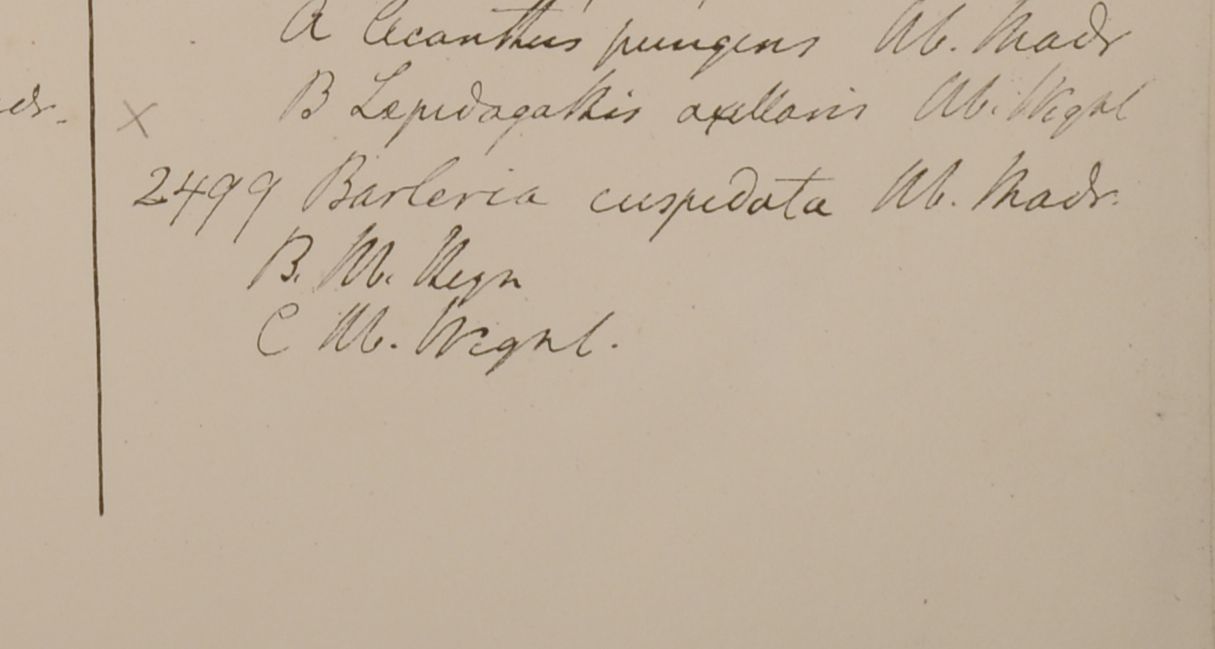 dr.
A Acanthus pungens Hb. Madr
× B Lepidagathis axillaris Hb. Wight
2499 Barleria cuspidata Hb. Madr.
B. Hb. Heyn
C Hb. Wight.